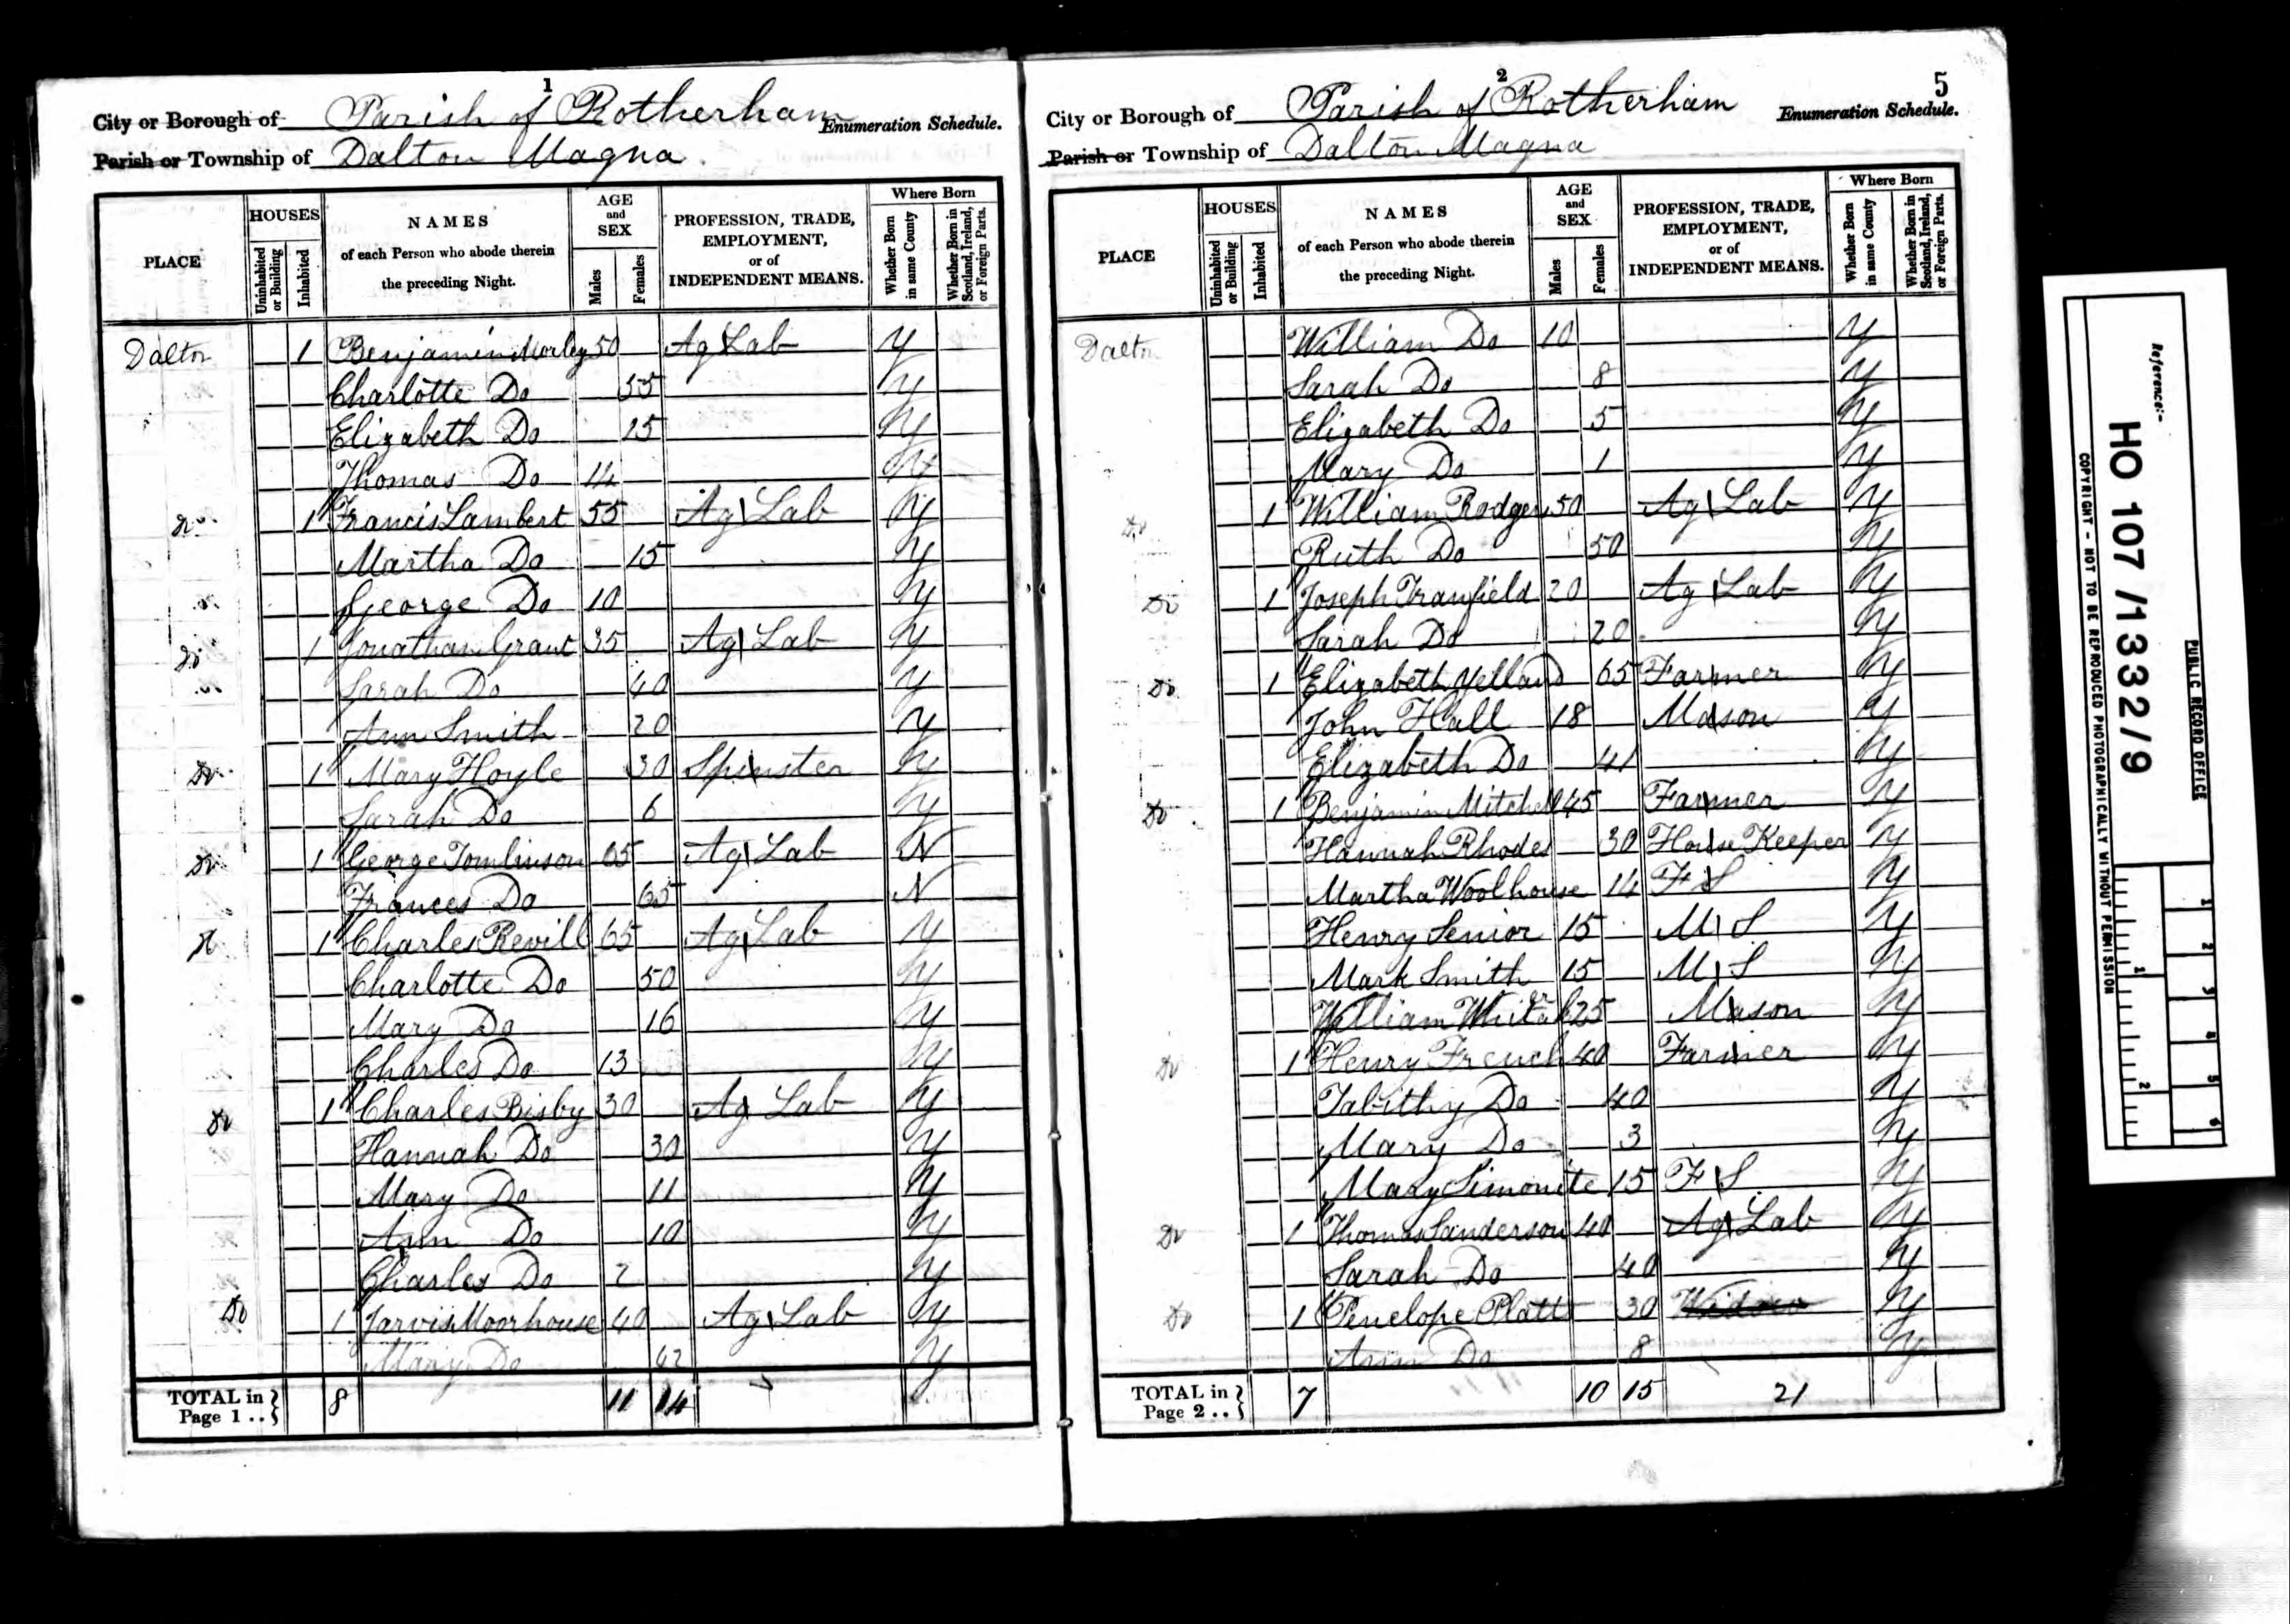 1
City or Borough of Parish of Rotherham Enumeration Schedule.
Parish or Township of Dalton Magna
PLACE
HOUSES
Uninhabited or Building
Inhabited
NAMES
of each Person who abode therein
the preceding Night.
AGE
and
SEX
Males
Females
PROFESSION, TRADE,
EMPLOYMENT,
or of
INDEPENDENT MEANS.
Where Born
Whether Born in same County
Whether Born in Scotland, Ireland, or Foreign Parts.
Dalton 1 Benjamin Morley 50 Ag Lab Y
Charlotte Do 55 Y
Elizabeth Do 15 Y
Thomas Do 14 Y
Do 1 Francis Lambert 55 Ag Lab Y
Martha Do 15 Y
George Do 10 Y
Do 1 Jonathan Grant 35 Ag Lab Y
Sarah Do 40 Y
Ann Smith 20 Y
Do 1 Mary Hoyle 30 Spinster Y
Sarah Do 6 Y
Do 1 George Tomlinson 65 Ag Lab N
Frances Do 65 N
Do 1 Charles Revill 65 Ag Lab Y
Charlotte Do 50 Y
Mary Do 16 Y
Charles Do 13 Y
Do 1 Charles Bisby 30 Ag Lab Y
Hannah Do 30 Y
Mary Do 11 Y
Ann Do 10 Y
Charles Do 2 Y
Do 1 Jarvis Moorhouse 40 Ag Lab Y
Mary Do 42 Y
TOTAL in Page 1 .. } 8 11 14
2
5
City or Borough of Parish of Rotherham Enumeration Schedule.
Parish or Township of Dalton Magna
PLACE
HOUSES
Uninhabited or Building
Inhabited
NAMES
of each Person who abode therein
the preceding Night.
AGE
and
SEX
Males
Females
PROFESSION, TRADE,
EMPLOYMENT,
or of
INDEPENDENT MEANS.
Where Born
Whether Born in same County
Whether Born in Scotland, Ireland, or Foreign Parts.
Dalton William Do 10 Y
Sarah Do 8 Y
Elizabeth Do 5 Y
Mary Do 1 Y
Do 1 William Rodgers 50 Ag Lab Y
Ruth Do 50 Y
Do 1 Joseph Tranfield 20 Ag Lab Y
Sarah Do 20 Y
Do 1 Elizabeth Yelland 65 Farmer Y
John Hall 18 Mason Y
Elizabeth Do 41 Y
Do 1 Benjamin Mitchell 45 Farmer Y
Hannah Rhodes 30 House Keeper Y
Martha Woolhouse 14 F S Y
Henry Senior 15 M S Y
Mark Smith 15 M S Y
William 25 Mason Y
Do 1 Henry French 40 Farmer Y
Tabithy Do 40 Y
Mary Do 3 Y
Mary Simonite 15 F S Y
Do 1 Thomas Sanderson 40 Ag Lab Y
Sarah Do 40 Y
Do 1 Penelope Platts 30 Widow Y
Ann Do 8 Y
TOTAL in Page 2 .. } 7 10 15 21
PUBLIC RECORD OFFICE
Reference:-
HO 107 /1332/9
COPYRIGHT - NOT TO BE REPRODUCED PHOTOGRAPHICALLY WITHOUT PERMISSION
1 2 3 4 5 6
1 2